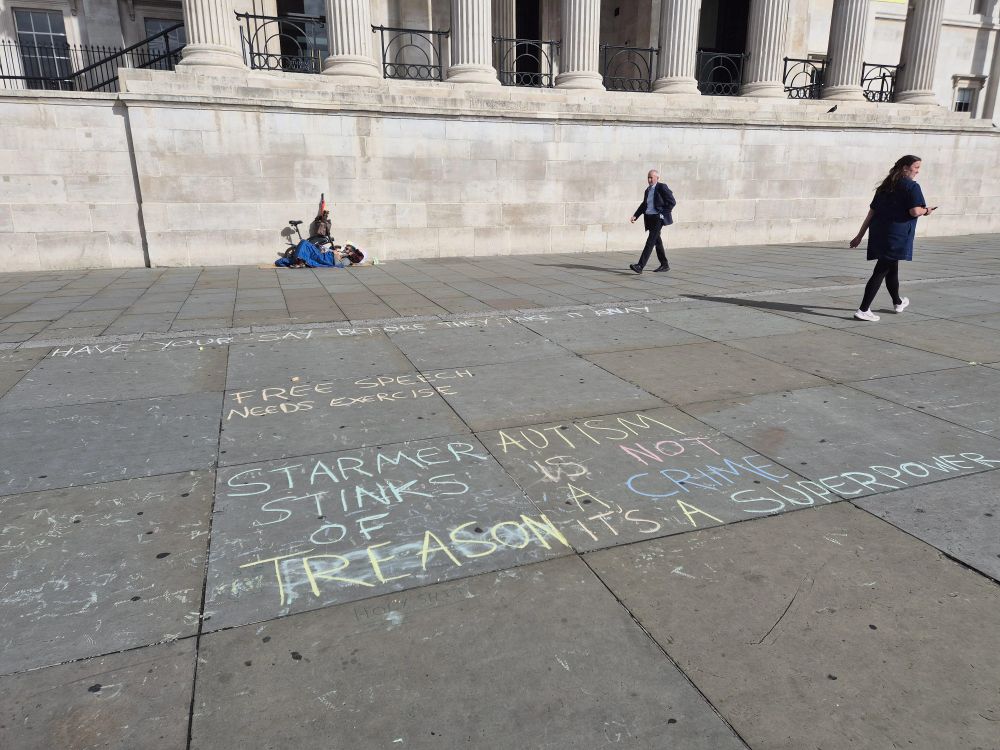 HAVE YOUR SAY BEFORE THEY TAKE IT AWAY
FREE SPEECH
NEEDS EXERCISE
STARMER
STINKS
OF
TREASON
AUTISM
IS NOT
A CRIME
ITS A SUPERPOWER
HOLY SHIT